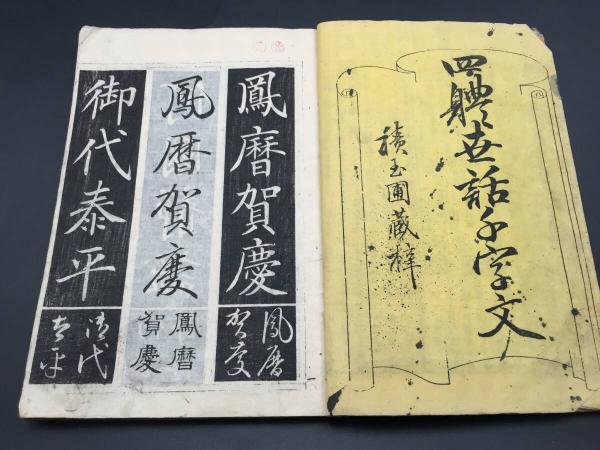 四體世話千字文
積玉圃藏梓
鳳暦賀慶
鳳暦
賀慶
鳳暦賀慶
鳳暦
賀慶
御代泰平
御代
泰平